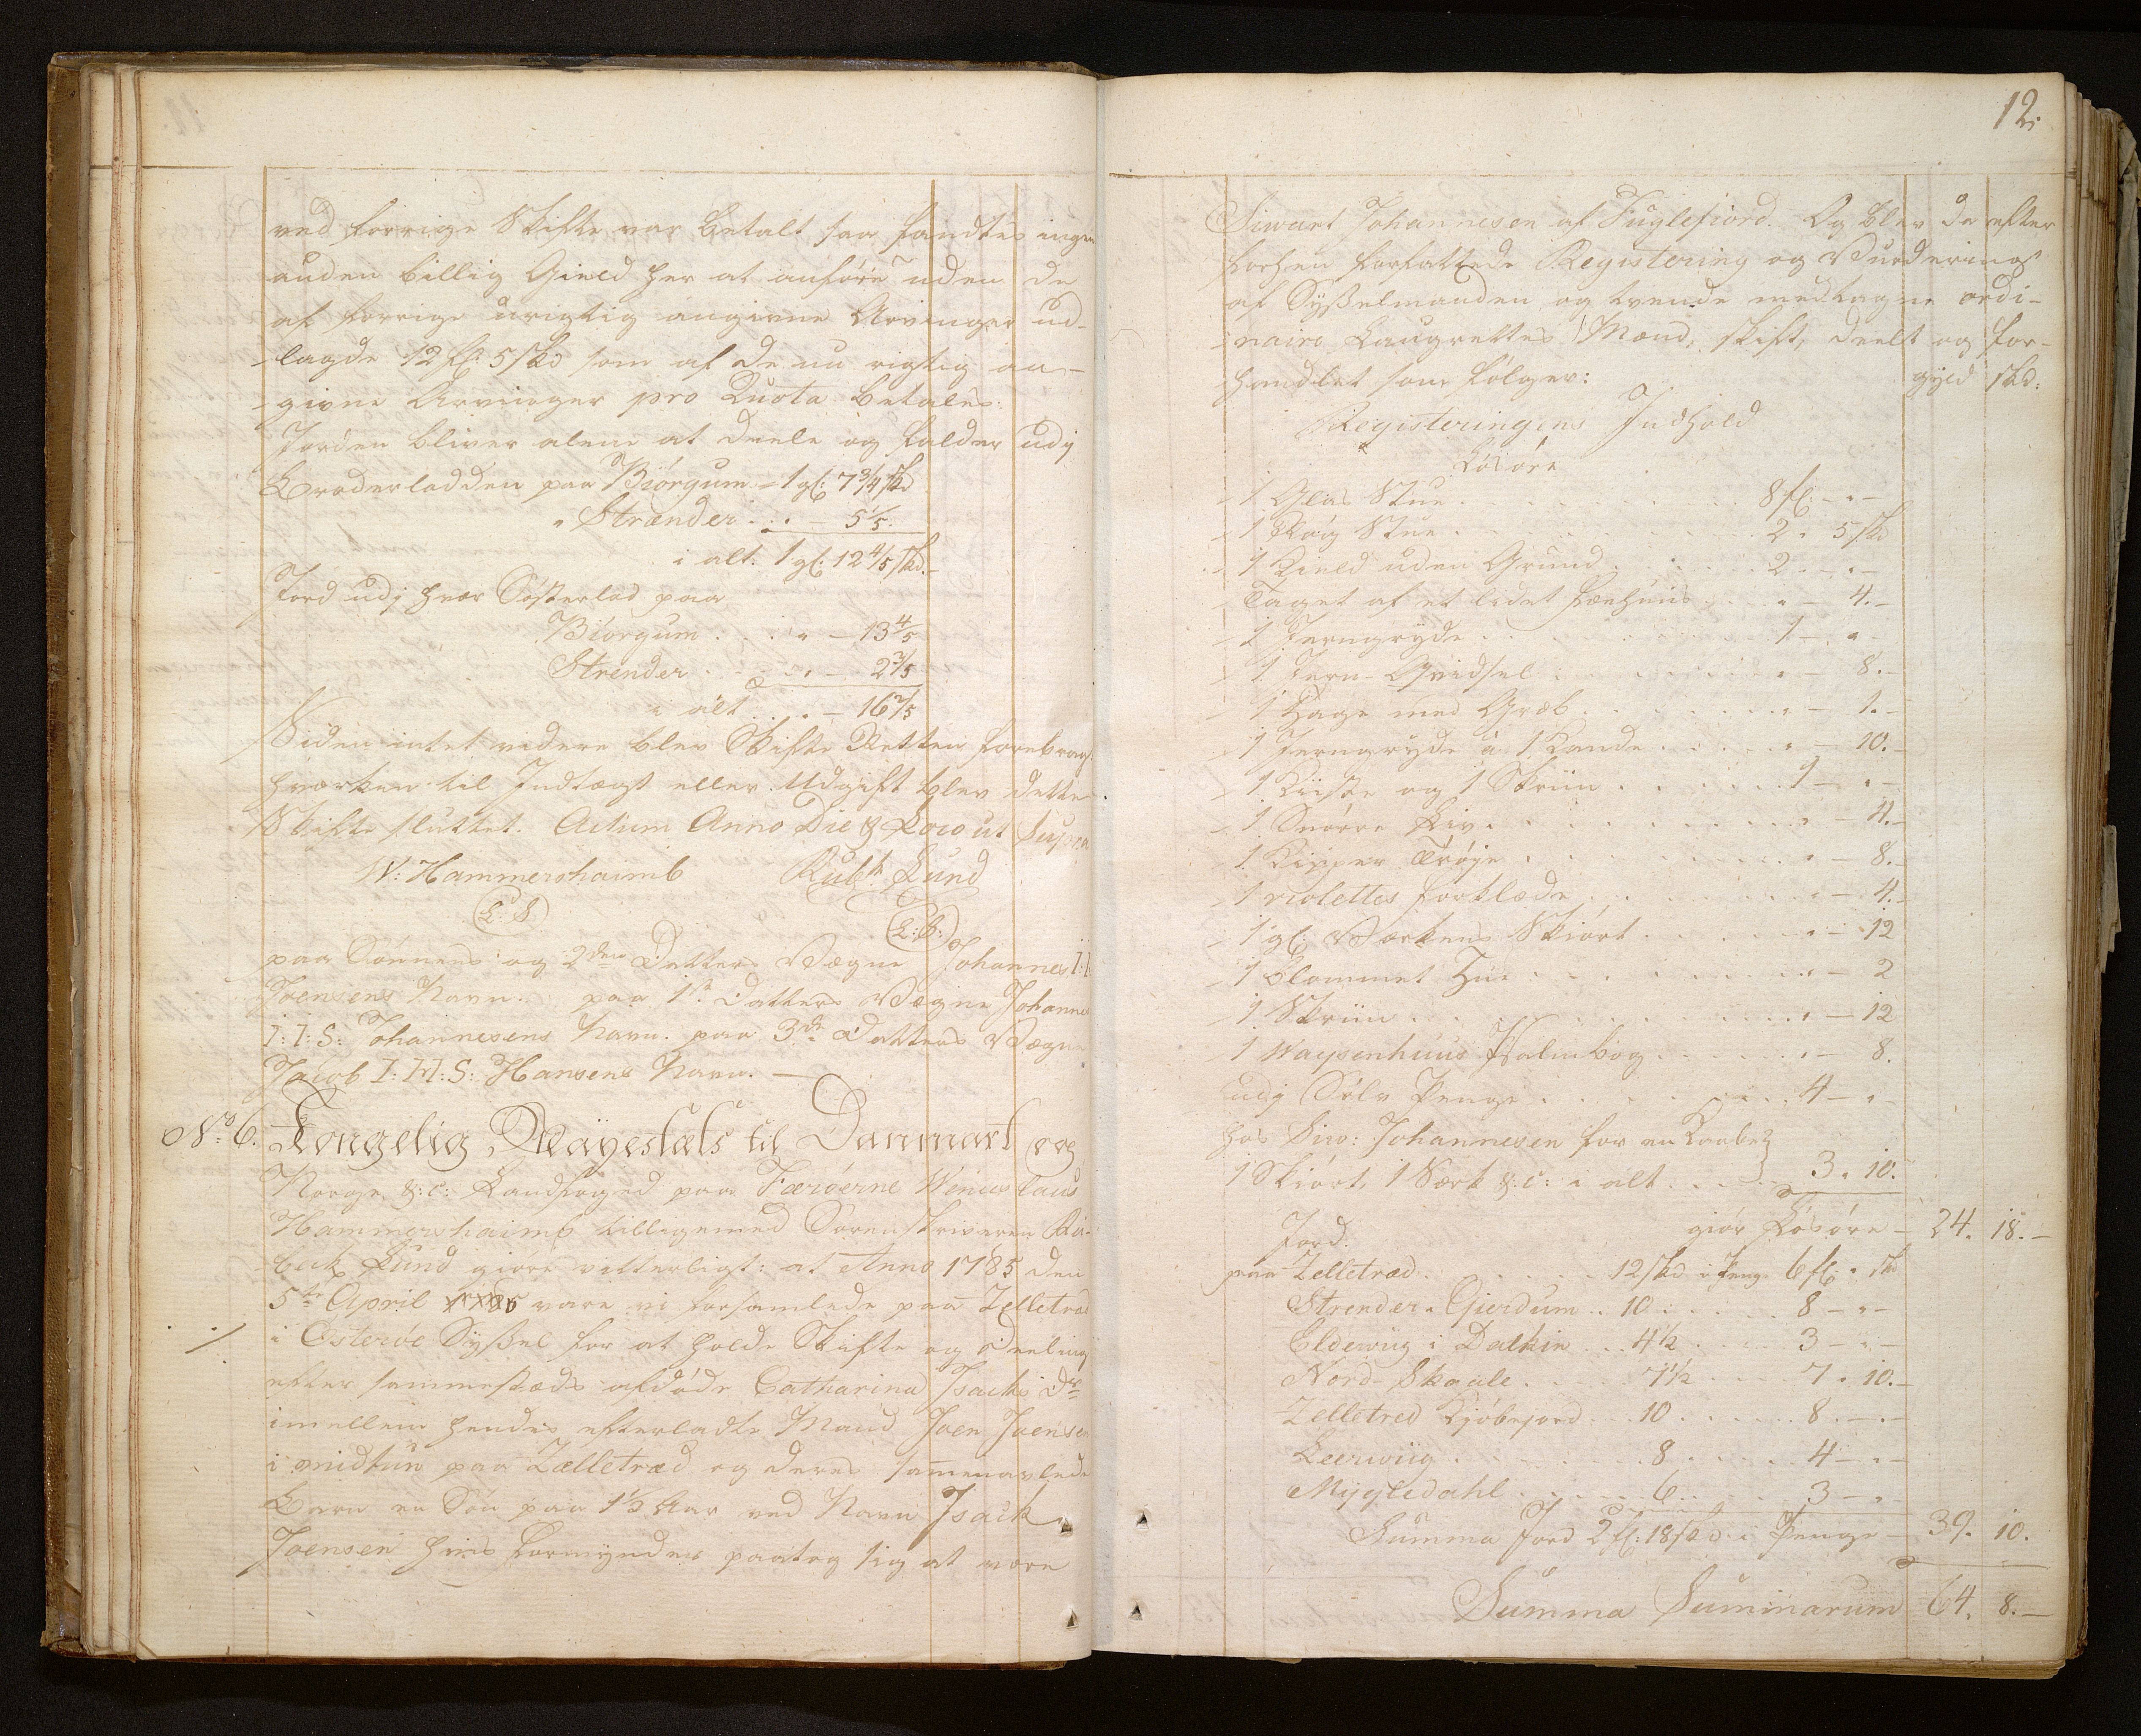 ved forrige Skifte var betalt saa fandtes ingen
anden billig Gield her at anføre uden de
af forrige urigtig angivne Arvinger ud-
lagde 12 fl: 5 skd som af de nu rigtig an-
givne Arvinger pro Quota betales:
Jorden bliver alene at deele og falder udj
Broderlodden paa Biórgum - 1 gl: 7 3/4 skd
" Strænder . . . - 5 1/5.
i alt. 1 gl: 12 4/5 skd.
Jord udj hver Søsterlod paa
Biorgum . . . " - 13 4/5
Strender . . . " - 2 3/5
i alt . . " - 16 2/5
Siden intet videre blev Skifte Retten forebragt
hverken til Indtægt eller Udgift blev dette
Skifte sluttet. Actum Anno Die & Loco ut Supra
W: Hammershaimb Rubk Lund
(L: S) (L: S:)
paa Sønnens og 2den Datters Vegne Johannes I: I:
Joensens Navn. paa 1te Datters Vegne Johannes
I: I: S: Johannesens Navn. paa 3de Datters Vegne
Jacob I: H: S: Hansens Navn. —
No 6. Kongelig Mayestæts til Danmark og
Norge &: c: Landfoged paa Færøerne Wenceslaus
Hammershaimb tilligemed Sorenskriveren Ru-
beck Lund giøre vitterligt: at Anno 1785 den
5te April vare vi forsamlede paa Zelletræd
i Østerøe Sÿssel for at holde Skifte og Deeling
efter sammestæds afdøde Catharina Isacks Dr
imellem hendes efterladte Mand Joen Joensen
i midtun paa Zælletræd og deres sammenavlede
Barn en Søn paa 1 1/2 Aar ved Navn Isack
Joensen hvis Formynder paatog sig at være
12.
Siwart Johannesen af Fuglefiord. Og blev da efter
forhen forfattede Registering og Vurdering
af Sÿsselmanden og tvende medtagne ordi-
naire Laugrettes Mænd, skift, deelt og for-
handlet som følger: gyld skd:
Registeringens Indhold
Løsøre
1 Glas Stue . . . 8 fl: - " -
1 Røg Stue . . . 2 " 5 skd
1 Kield uden Grund . . . 2 - " -
Taget af et lidet Fæehuus . . . " - 4. -
1 Jerngryde . . . 1 - "
1 Jern Qvidsel . . . " - 8. -
1 Hage med Græb . . . " - 1. -
1 Jerngryde à 1 Kande . . . " - 10. -
1 Kiiste og 1 Skriin . . . 1 - " -
1 Snørre Liv . . . " - 4. -
1 Kipper Trøje . . . " - 8. -
1 violettes forklæde . . . " - 4. -
1 gl: Værkens Skiørt . . . " - 12
1 blommet Hue . . . " - 2
1 Skriin . . . " - 12
1 Waysenhuus Psalmbog . . . " - 8.
udj Sølv Penge . . . 4 - "
hos Siw: Johannesen for en
1 Skiört, 1 Særk &: c: i alt . . . 3 " 10.
giør Løsøre - 24. 18. -
Jord.
paa Zelletræd . . . 12 skd i Peng. 6 fl: " skd
Strender " Gierdum . . 10 . . . 8 - " -
Eldewiig i Dalkin . . . 4 1/2 . . . 3 - " -
Nord Skaale . . . 7 1/2 . . . 7 " 10. -
Zelletred Kjøbejord . . . 10 . . . 8. - " -
Leerwiig . . . 8 . . . 4 - " -
Mÿgledahl . . . 6 . . . 3 - "
Summa Jord 2 fl: 18 skd i Penge - 39. 10.
Summa Summarum 64. 8. -